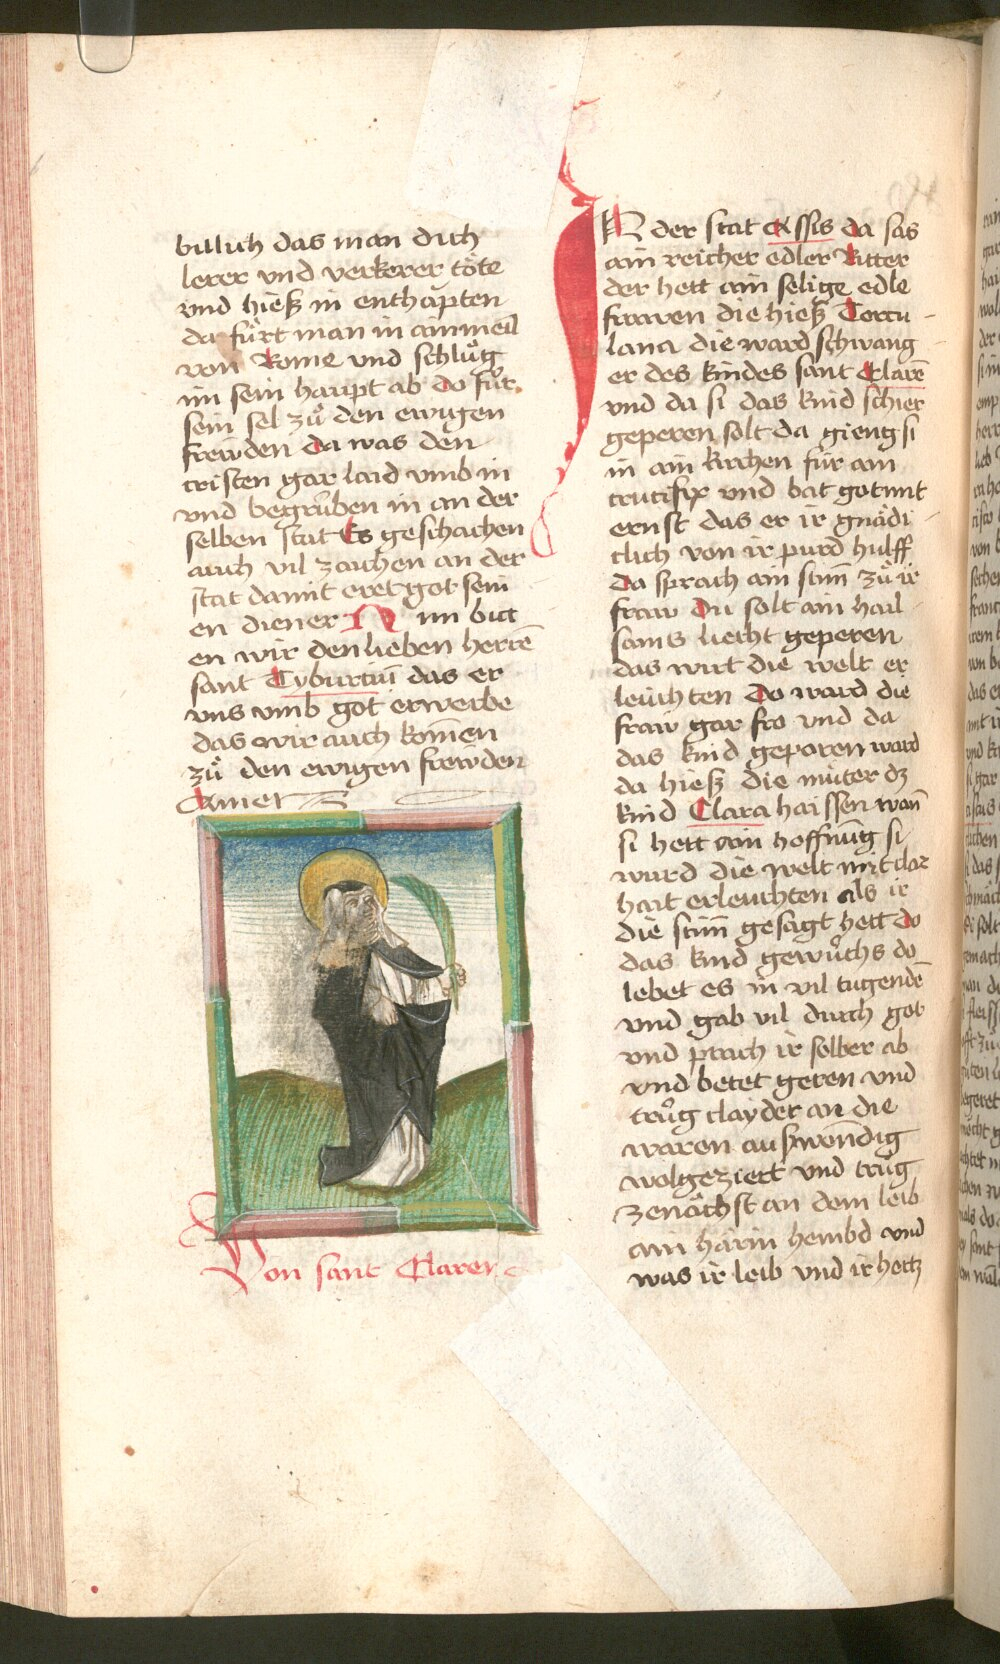 billich das man dich
lerer vnd verkerer töte
vnd hieß in enthapten
da fůrt man in ain meil
von Rome vnd schlůg
im sein haupt ab do fůr
sein sel zů den ewigen
frewden da was den
cristen gar laid vmb in
vnd begrůben in an der
selben stat Es geschachen
auch vil zaichen an der
stat damit eret got sein
en diener Nun bitt
en wir den lieben herrē
sant Tyburciū das er
vns vmb got erwerbe
das wir auch komen
zů den ewigen frewden
Amen
Von sant Claren
IN der stat Assis da sas
ain reicher edler Ritter
der hett ain selige edle
frawen die hieß Tortu-
lana die ward schwang
er des kindes sant Clarē
vnd da si das kind schier
geperen solt da gieng si
in ain kirchen für ain
crucifix vnd bat got mit
ernst das er ir gnädi-
clich von ir purd hulff
Da sprach ain stim̄ zů ir
fraw Du solt ain hail-
sams liecht geperen
das wirt die welt er
leuchten Do ward die
fraw gar fro vnd da
das kind geporen ward
da hieß die můter dz
kind Clara haissen wan̄
si hett ain hoffnūg si
wurd die welt mit clar
hait erleuchten als ir
die stim̄ gesagt hett do
das kind gewůchs do
lebet es in vil tugendē
vnd gab vil durch got
vnd prach ir selber ab
vnd betet geren vnd
trůg clayder an die
waren auswendig
wolgeziert vnd trůg
zenächst an dem leib
ain härin hembd vnd
was ir leib vnd ir hertz